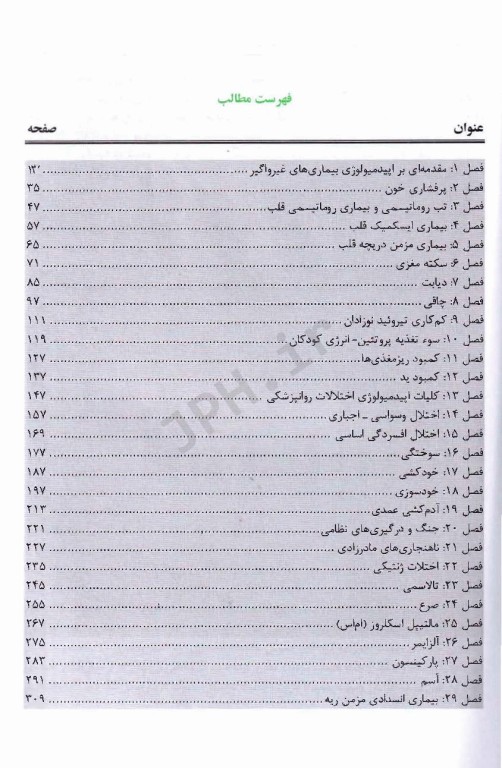 فهرست مطالب
عنوان صفحه
فصل ۱: مقدمه‌ای بر اپیدمیولوژی بیماری‌های غیرواگیر ۱۳
فصل ۲: پرفشاری خون ۳۵
فصل ۳: تب روماتیسمی و بیماری روماتیسمی قلب ۴۷
فصل ۴: بیماری ایسکمیک قلب ۵۷
فصل ۵: بیماری مزمن دریچه قلب ۶۵
فصل ۶: سکته مغزی ۷۱
فصل ۷: دیابت ۸۵
فصل ۸: چاقی ۹۷
فصل ۹: کم‌کاری تیروئید نوزادان ۱۱۱
فصل ۱۰: سوء تغذیه پروتئین- انرژی کودکان ۱۱۹
فصل ۱۱: کمبود ریزمغذی‌ها ۱۲۷
فصل ۱۲: کمبود ید ۱۳۷
فصل ۱۳: کلیات اپیدمیولوژی اختلالات روانپزشکی ۱۴۷
فصل ۱۴: اختلال وسواسی ـ اجباری ۱۵۷
فصل ۱۵: اختلال افسردگی اساسی ۱۶۹
فصل ۱۶: سوختگی ۱۷۷
فصل ۱۷: خودکشی ۱۸۷
فصل ۱۸: خودسوزی ۱۹۷
فصل ۱۹: آدم‌کشی عمدی ۲۱۳
فصل ۲۰: جنگ و درگیری‌های نظامی ۲۲۱
فصل ۲۱: ناهنجاری‌های مادرزادی ۲۲۷
فصل ۲۲: اختلات ژنتیکی ۲۳۵
فصل ۲۳: تالاسمی ۲۴۵
فصل ۲۴: صرع ۲۵۵
فصل ۲۵: مالتیپل اسکلروز (ام‌اس) ۲۶۷
فصل ۲۶: آلزایمر ۲۷۵
فصل ۲۷: پارکینسون ۲۸۳
فصل ۲۸: آسم ۲۹۱
فصل ۲۹: بیماری انسدادی مزمن ریه ۳۰۹
JPH.ir